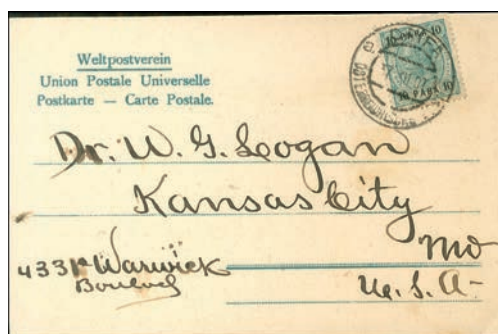 Weltpostverein
Union Postale Universelle
Postkarte — Carte Postale.
10 PARA 10
10 PARA 10
Dr. W. G. Logan
Kansas City
Mo
4331 Warwick
U. S. A.